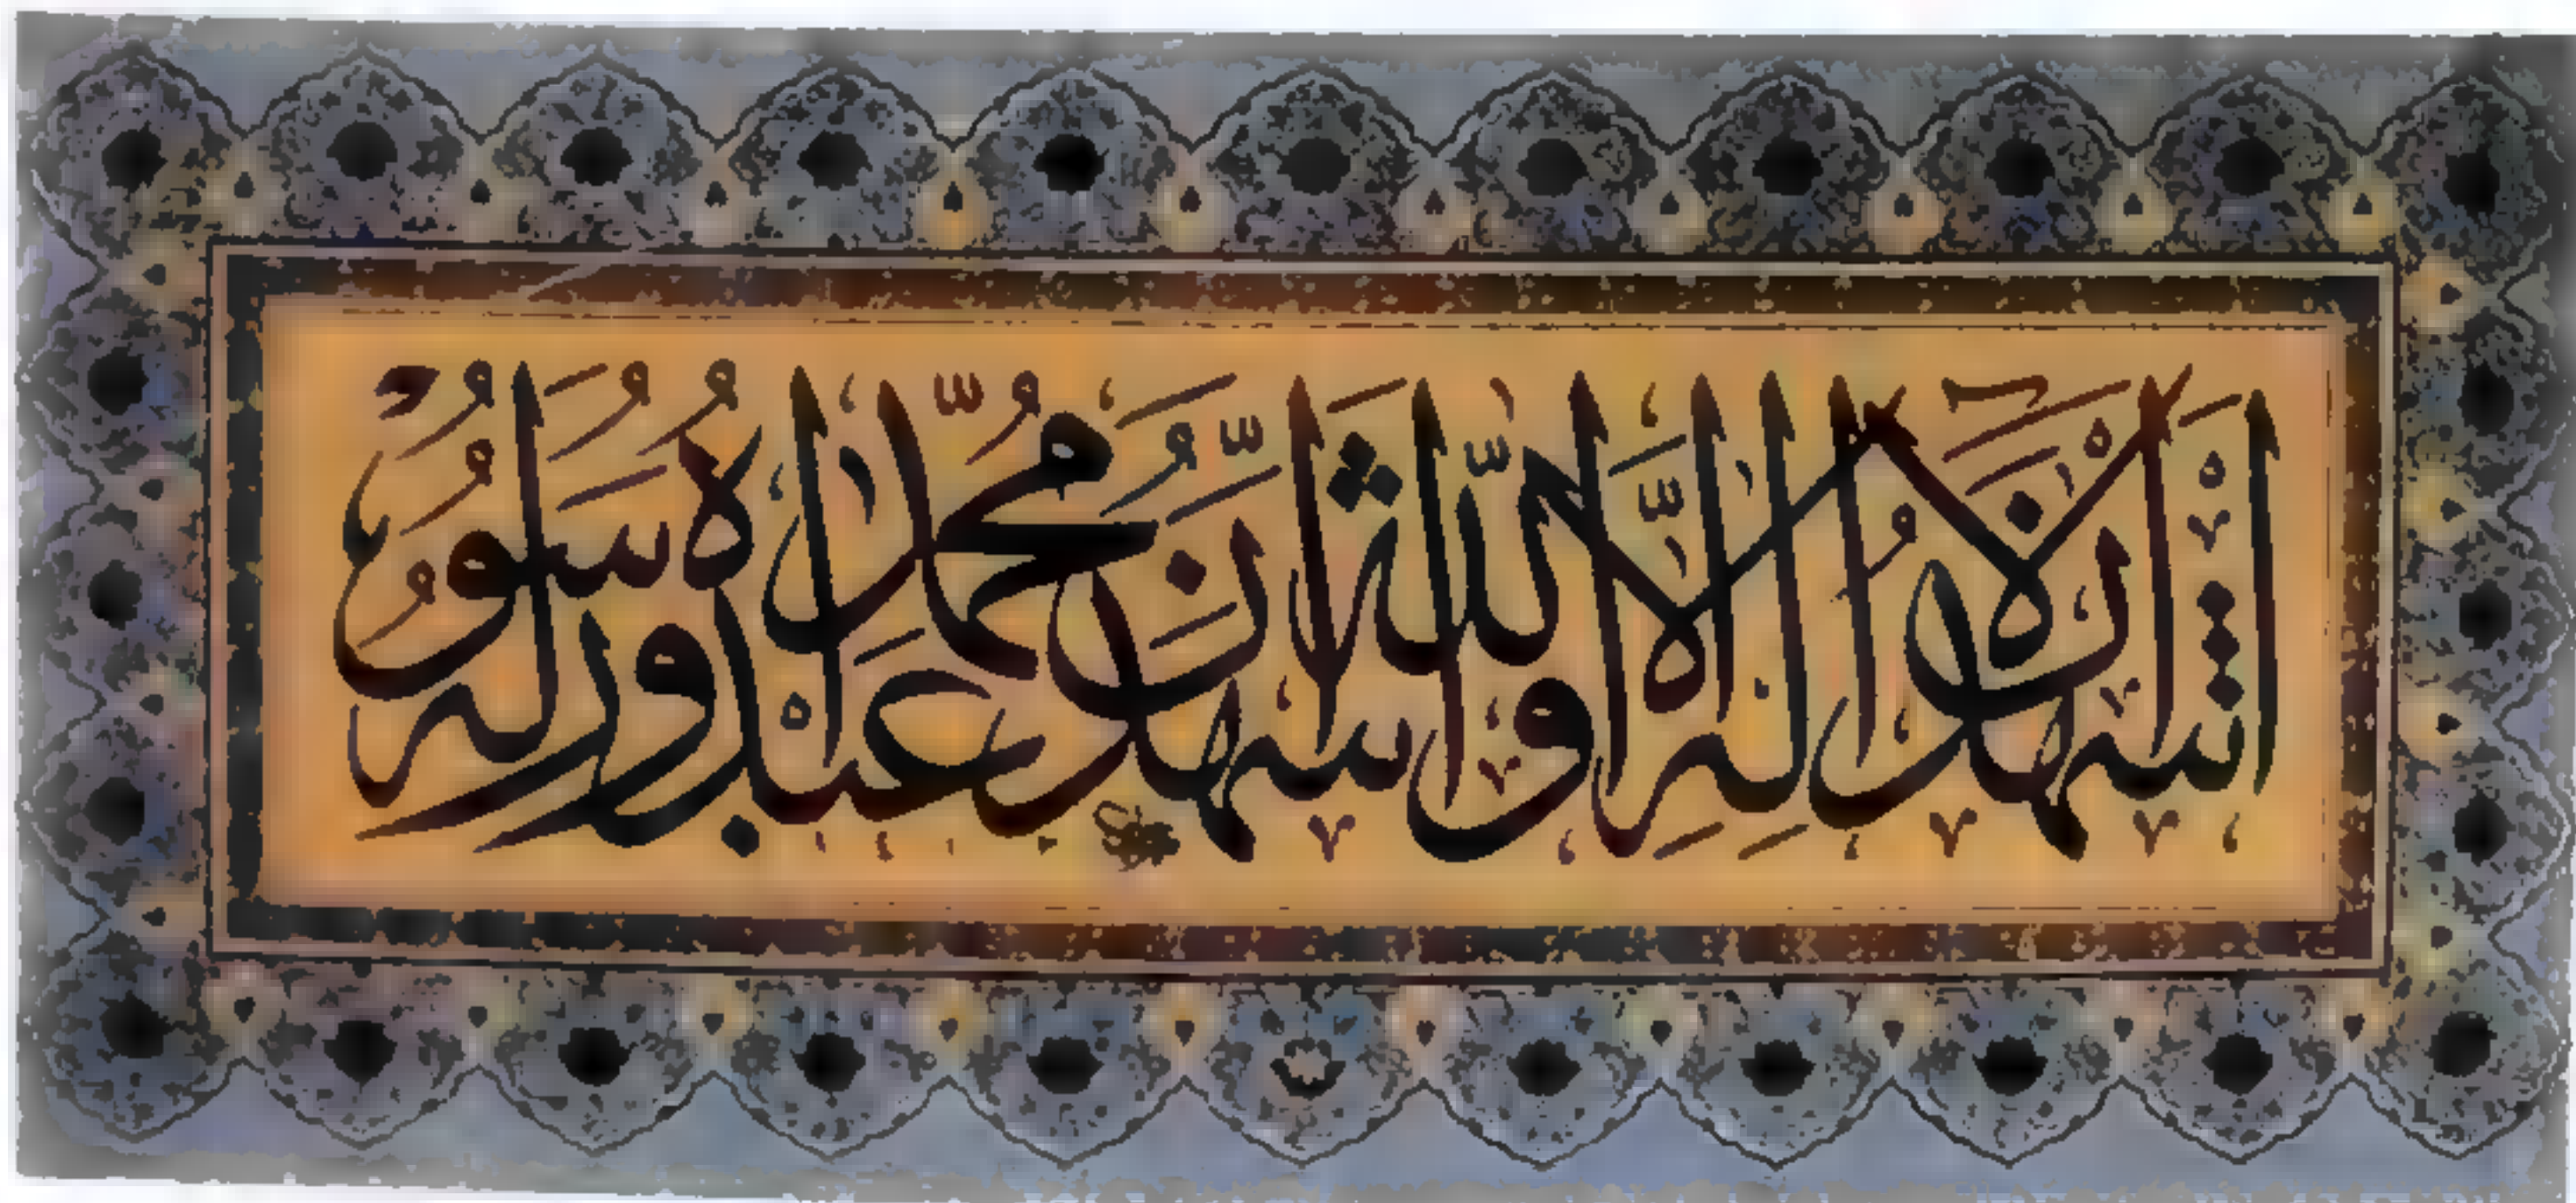 اَشْهَدُ اَنْ لَا اِلٰهَ اِلَّا اللّٰهُ وَاَشْهَدُ اَنَّ مُحَمَّدًا عَبْدُهُ وَرَسُولُهُ